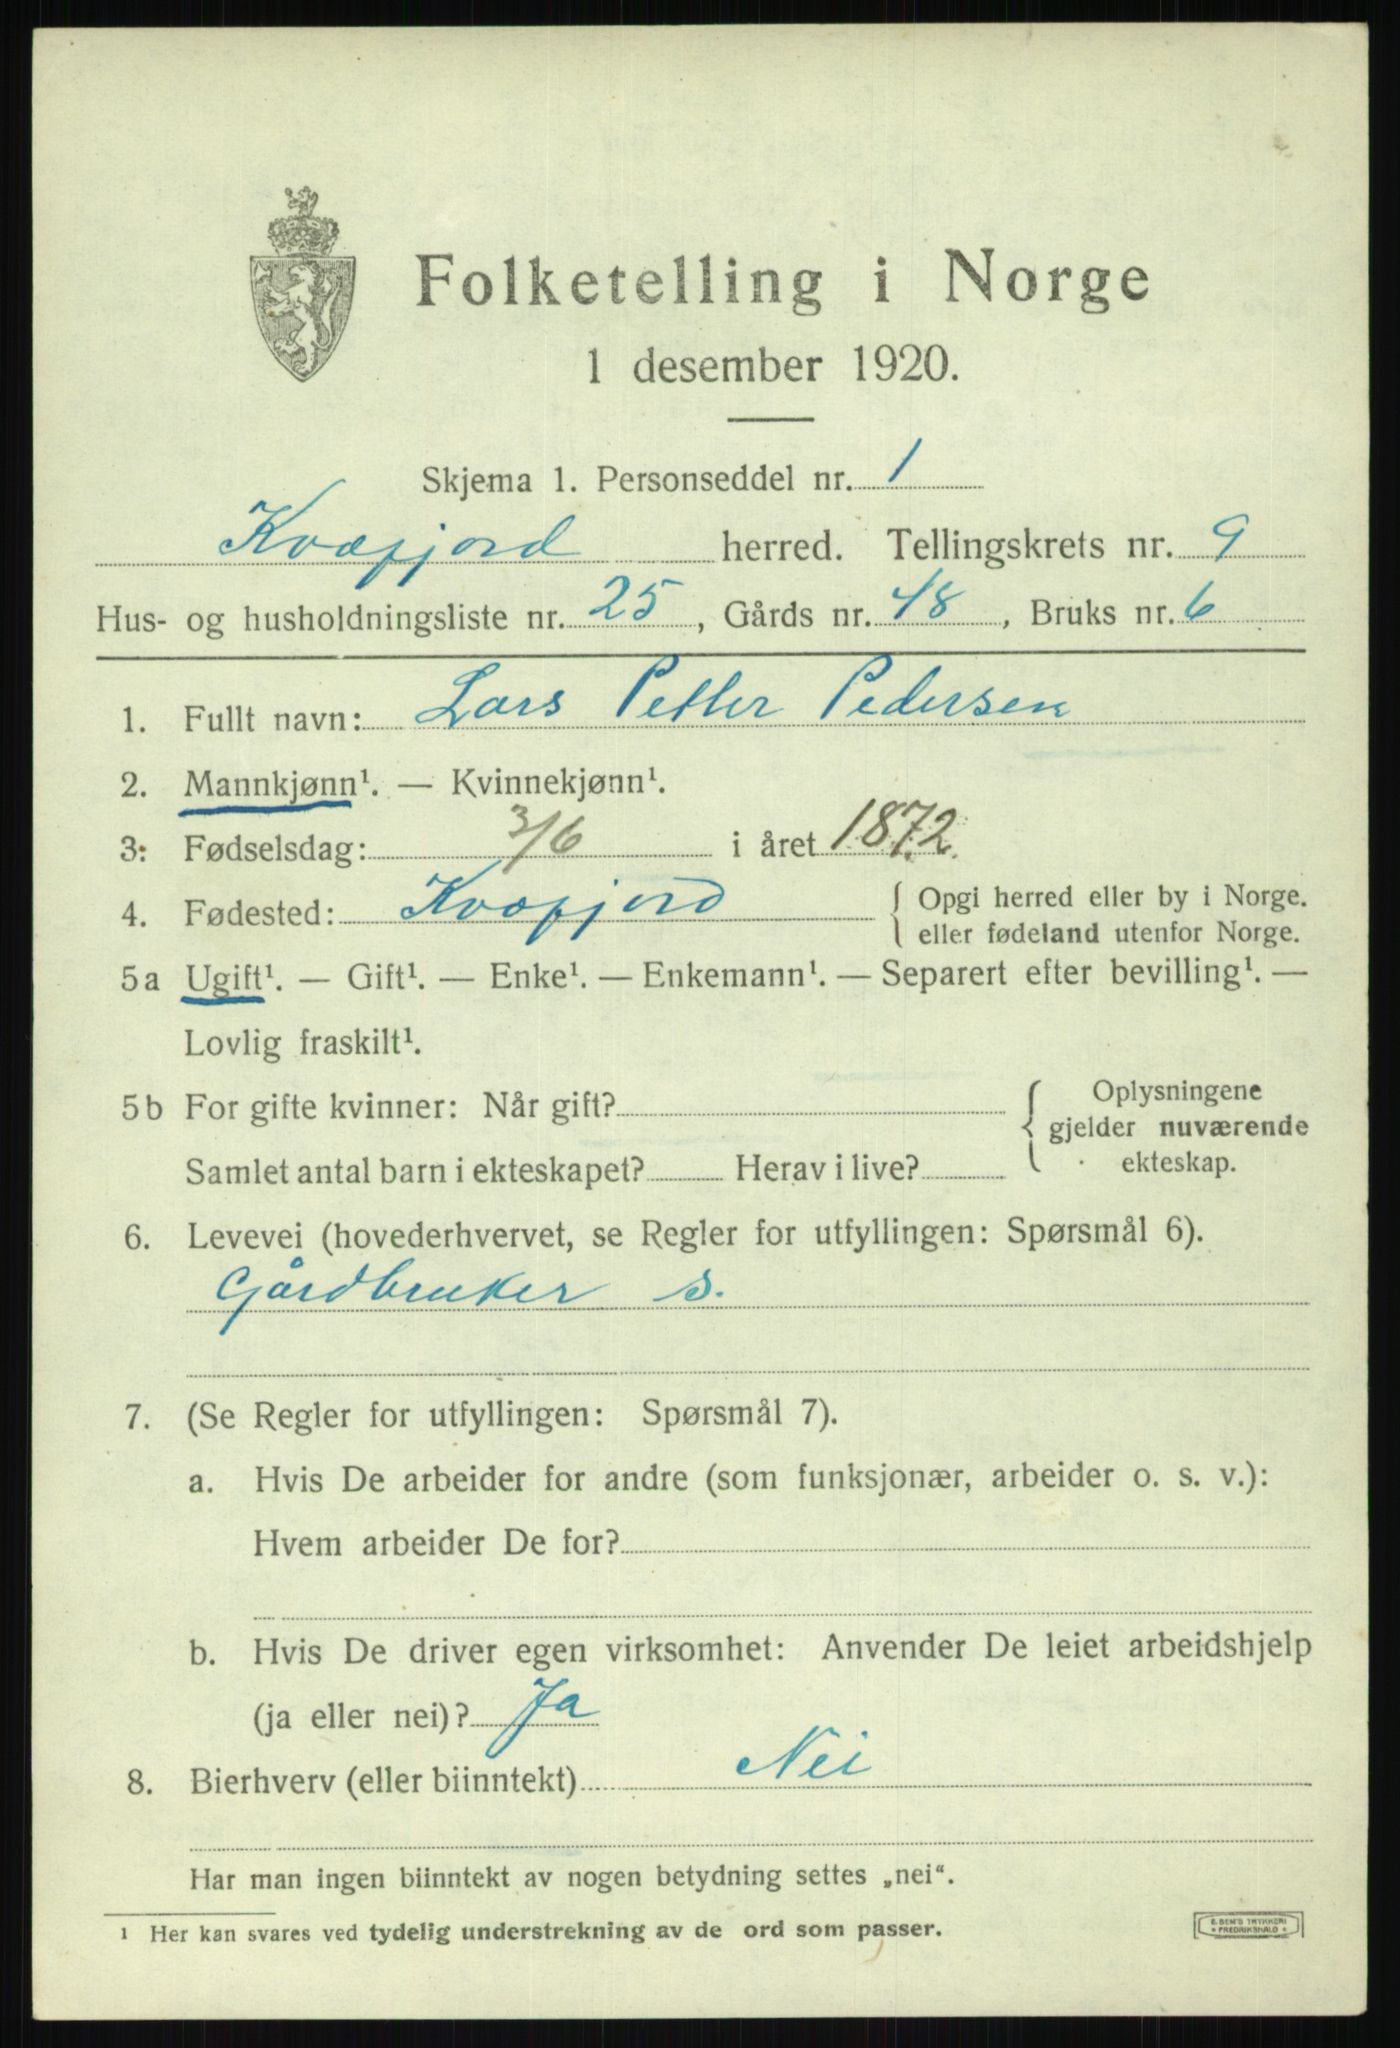 Folketelling i Norge
1 desember 1920.
Skjema 1. Personseddel nr. 1
Kvæfjord herred. Tellingskrets nr. 9
Hus- og husholdningsliste nr. 25, Gårds nr. 48, Bruks nr. 6
1. Fullt navn: Lars Petter Pedersen
2. Mannkjønn¹. — Kvinnekjønn¹.
3: Fødselsdag: 3/6 i året 1872.
4. Fødested: Kvæfjord { Opgi herred eller by i Norge.
eller fødeland utenfor Norge.
5a Ugift¹. — Gift¹. — Enke¹. — Enkemann¹. — Separert efter bevilling¹. —
Lovlig fraskilt¹.
5b For gifte kvinner: Når gift? { Oplysningene
gjelder nuværende
Samlet antal barn i ekteskapet? Herav i live? ekteskap.
6. Levevei (hovederhvervet, se Regler for utfyllingen: Spørsmål 6).
Gårdbruker s.
7. (Se Regler for utfyllingen: Spørsmål 7).
a. Hvis De arbeider for andre (som funksjonær, arbeider o. s. v.):
Hvem arbeider De for?
b. Hvis De driver egen virksomhet: Anvender De leiet arbeidshjelp
(ja eller nei)? Ja
8. Bierhverv (eller biinntekt) Nei
Har man ingen biinntekt av nogen betydning settes „nei“.
¹ Her kan svares ved tydelig understrekning av de ord som passer.
E. SEM'S TRYKKERI
FREDRIKSHALD